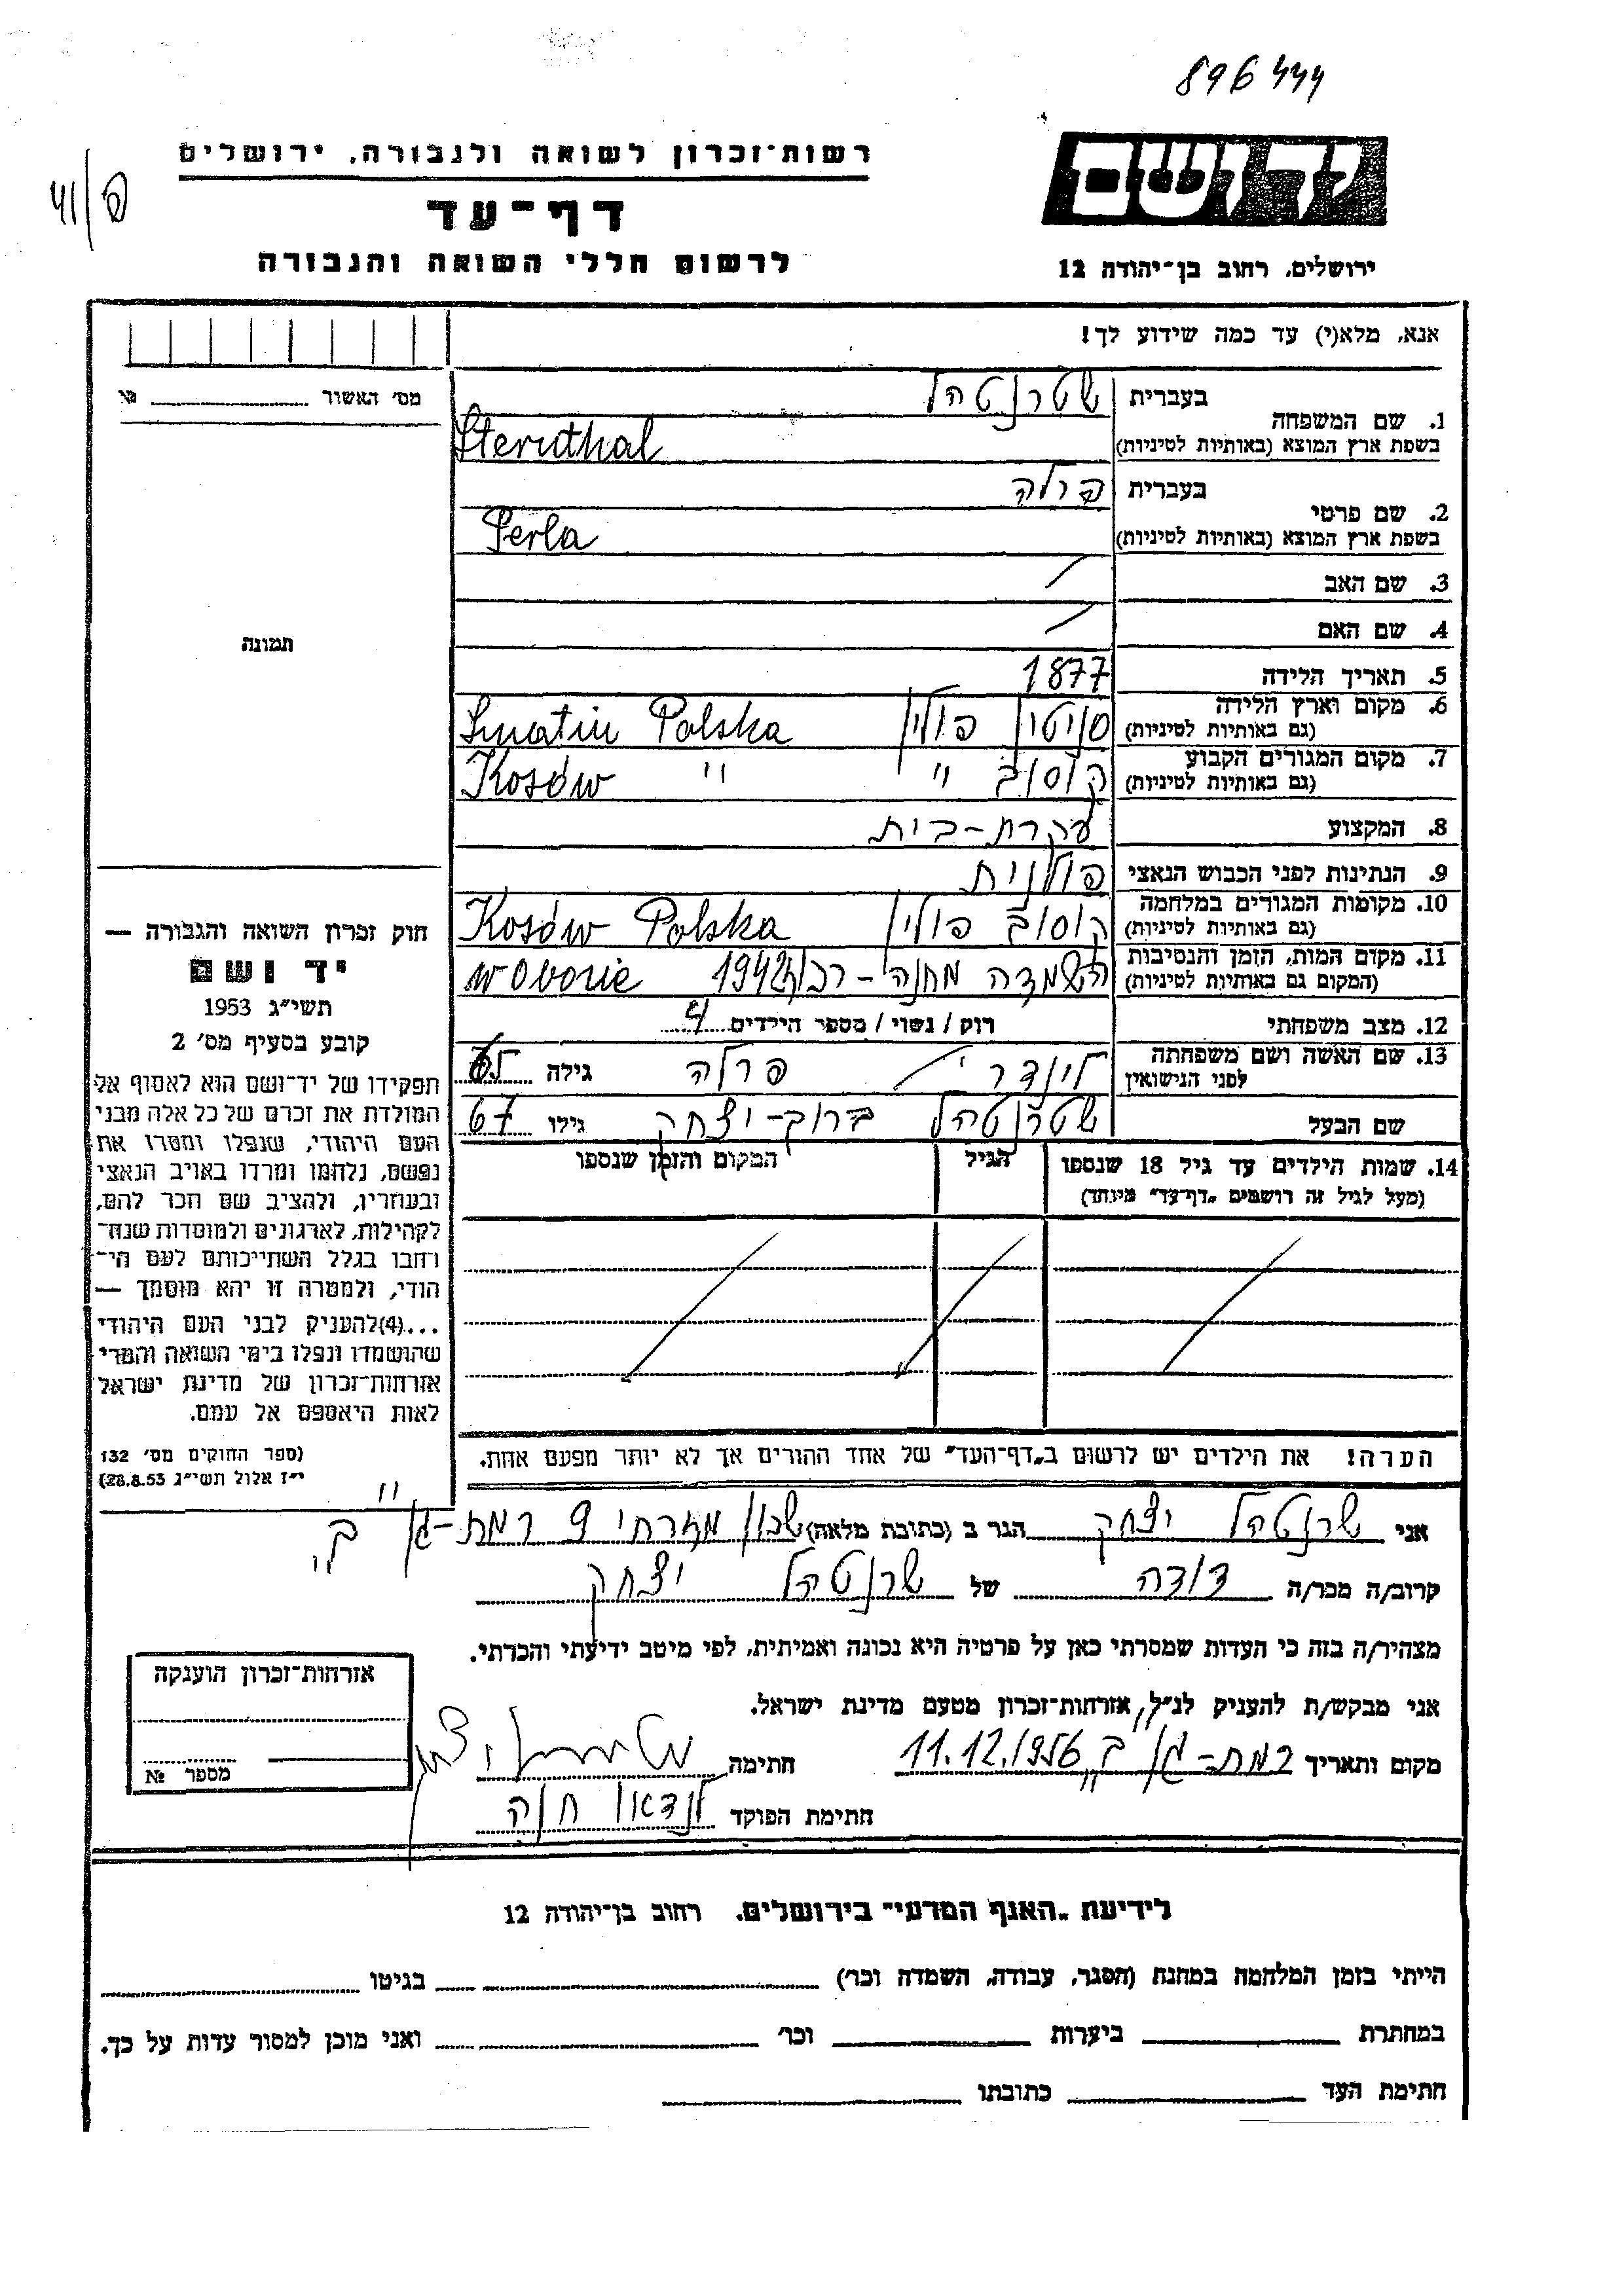 896444
ידושם
ירושלים, רחוב בן־יהודה 12
רשות־זכרון לשואה ולגבורה, ירושלים
דף־עד
לרשום חללי השואה והגבורה
אנא, מלא(י) עד כמה שידוע לך!
מס׳ האשור № 
1. שם המשפחה
בעברית שטרנטהל
בשפת ארץ המוצא (באותיות לטיניות) Sternthal
2. שם פרטי
בעברית פרלה
בשפת ארץ המוצא (באותיות לטיניות) Perla
3. שם האב /
4. שם האם /
תמונה
5. תאריך הלידה 1877
6. מקום וארץ הלידה
(גם באותיות לטיניות) סניטין פולין Sniatin Polska
7. מקום המגורים הקבוע
(גם באותיות לטיניות) קוסוב " Kosów "
8. המקצוע עקרת-בית
9. הנתינות לפני הכבוש הנאצי פולנית
10. מקומות המגורים במלחמה
(גם באותיות לטיניות) קוסוב פולין Kosów Polska
11. מקום המות, הזמן והנסיבות
(המקום גם באותיות לטיניות) השמדה מחנה - 1942 w Oborie
12. מצב משפחתי רוק / נשוי / מספר הילדים 4
13. שם האשה ושם משפחתה
לפני הנישואין לינדר פרלה גילה 65
שם הבעל שטרנטהל ברוך-יצחק גילו 67
14. שמות הילדים עד גיל 18 שנספו הגיל המקום והזמן שנספו
(מעל לגיל זה רושמים „דף־עד" מיוחד)
הערה! את הילדים יש לרשום ב„דף־העד" של אחד ההורים אך לא יותר מפעם אחת.
חוק זכרון השואה והגבורה —
יד ושם
תשי״ג 1953
קובע בסעיף מס׳ 2
תפקידו של יד־ושם הוא לאסוף אל
המולדת את זכרם של כל אלה מבני
העם היהודי, שנפלו ומסרו את
נפשם, נלחמו ומרדו באויב הנאצי
ובעוזריו, ולהציב שם וזכר להם,
לקהילות, לארגונים ולמוסדות שנח־
רבו בגלל השתייכותם לעם הי־
הודי, ולמטרה זו יהא מוסמך —
...(4)להעניק לבני העם היהודי
שהושמדו ונפלו בימי השואה והמרי
אזרחות־זכרון של מדינת ישראל
לאות היאספם אל עמם.
(ספר החוקים מס׳ 132
י״ז אלול תשי״ג 28.8.53)
אני שטרנטהל יצחק הגר ב (כתובת מלאה) שכון מזרחי 9 רמת-גן ב׳
קרוב/ה מכר/ה דודה של שטרנטהל יצחק
מצהיר/ה בזה כי העדות שמסרתי כאן על פרטיה היא נכונה ואמיתית, לפי מיטב ידיעתי והכרתי.
אני מבקש/ת להעניק לנ״ל אזרחות־זכרון מטעם מדינת ישראל.
מקום ותאריך רמת-גן ב" 11.12.1956 חתימה
חתימת הפוקד לנדאו חנה
אזרחות־זכרון הוענקה
מספר №
לידיעת „האגף המדעי" בירושלים, רחוב בן־יהודה 12
הייתי בזמן המלחמה במחנה (הסגר, עבודה, השמדה וכו׳) בגיטו
במחתרת ביערות וכו׳ ואני מוכן למסור עדות על כך.
חתימת העד כתובתו